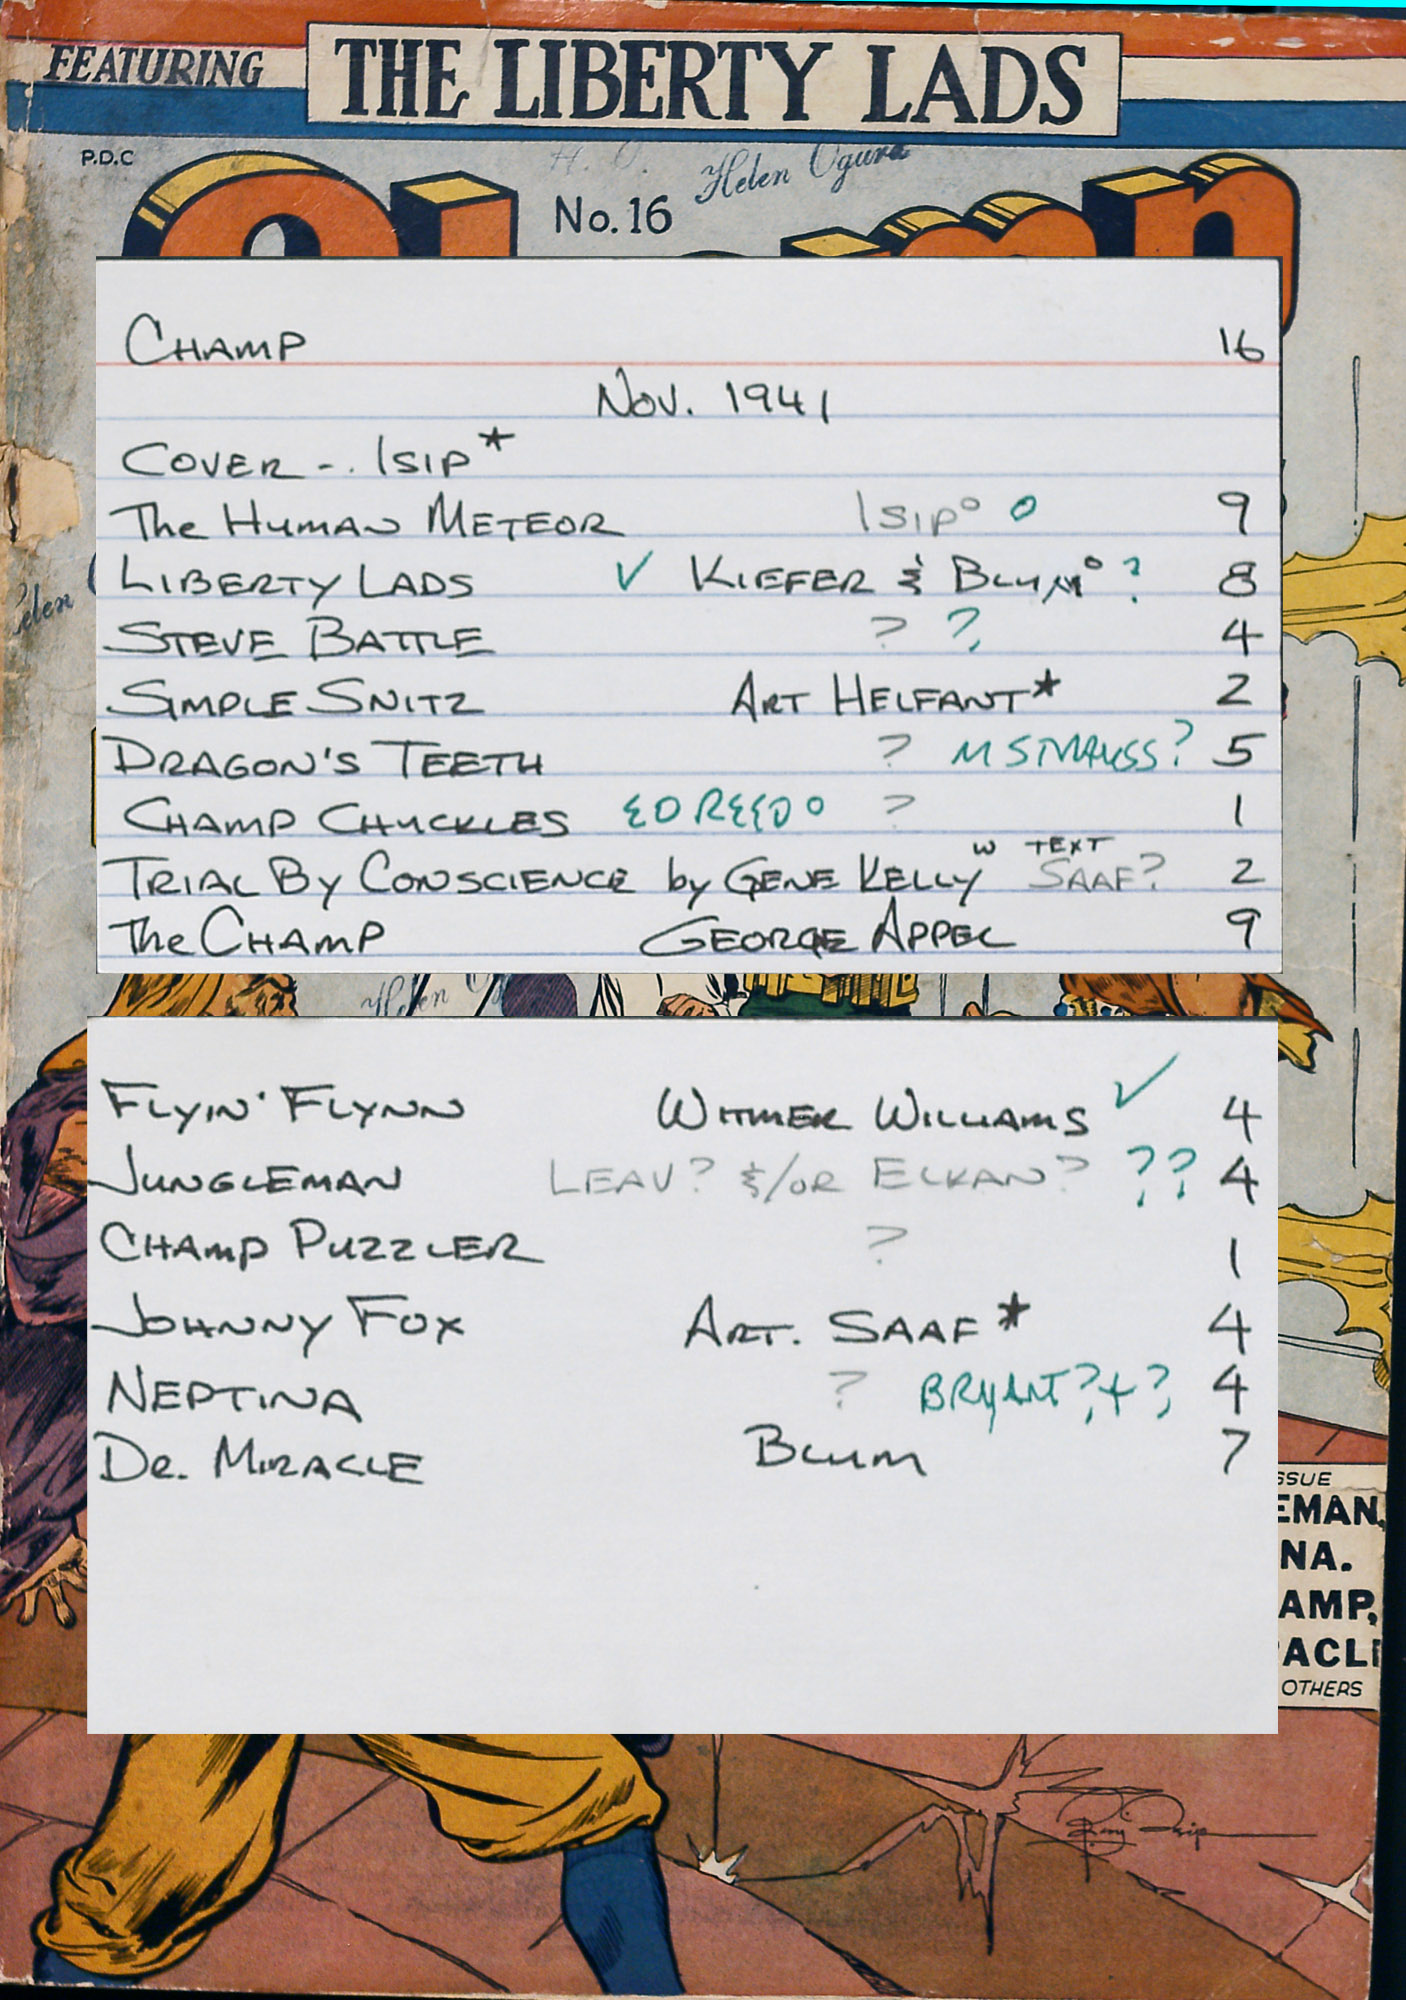 FEATURING THE LIBERTY LADS
P.D.C
H. O. Helen Ogura
No. 16
CHAMP 16
NOV. 1941
COVER - . ISIP *
The HUMAN METEOR ISIP° o 9
LIBERTY LADS ✓ KIEFER & BLUM° ? 8
STEVE BATTLE ? ? 4
SIMPLE SNITZ ART HELFANT * 2
DRAGON'S TEETH ? M STRAUSS? 5
CHAMP CHUCKLES ED REED o ? 1
TRIAL BY CONSCIENCE by GENE KELLY W TEXT SAAF? 2
The CHAMP GEORGE APPEL 9
Helen
Helen
FLYIN' FLYNN WITMER WILLIAMS ✓ 4
JUNGLEMAN LEAV? &/OR ELKAN? ?? 4
CHAMP PUZZLER ? 1
JOHNNY FOX ART. SAAF * 4
NEPTINA ? BRYANT? + ? 4
DR. MIRACLE BLUM 7
SSUE
EMAN,
NA.
AMP,
ACLE
OTHERS